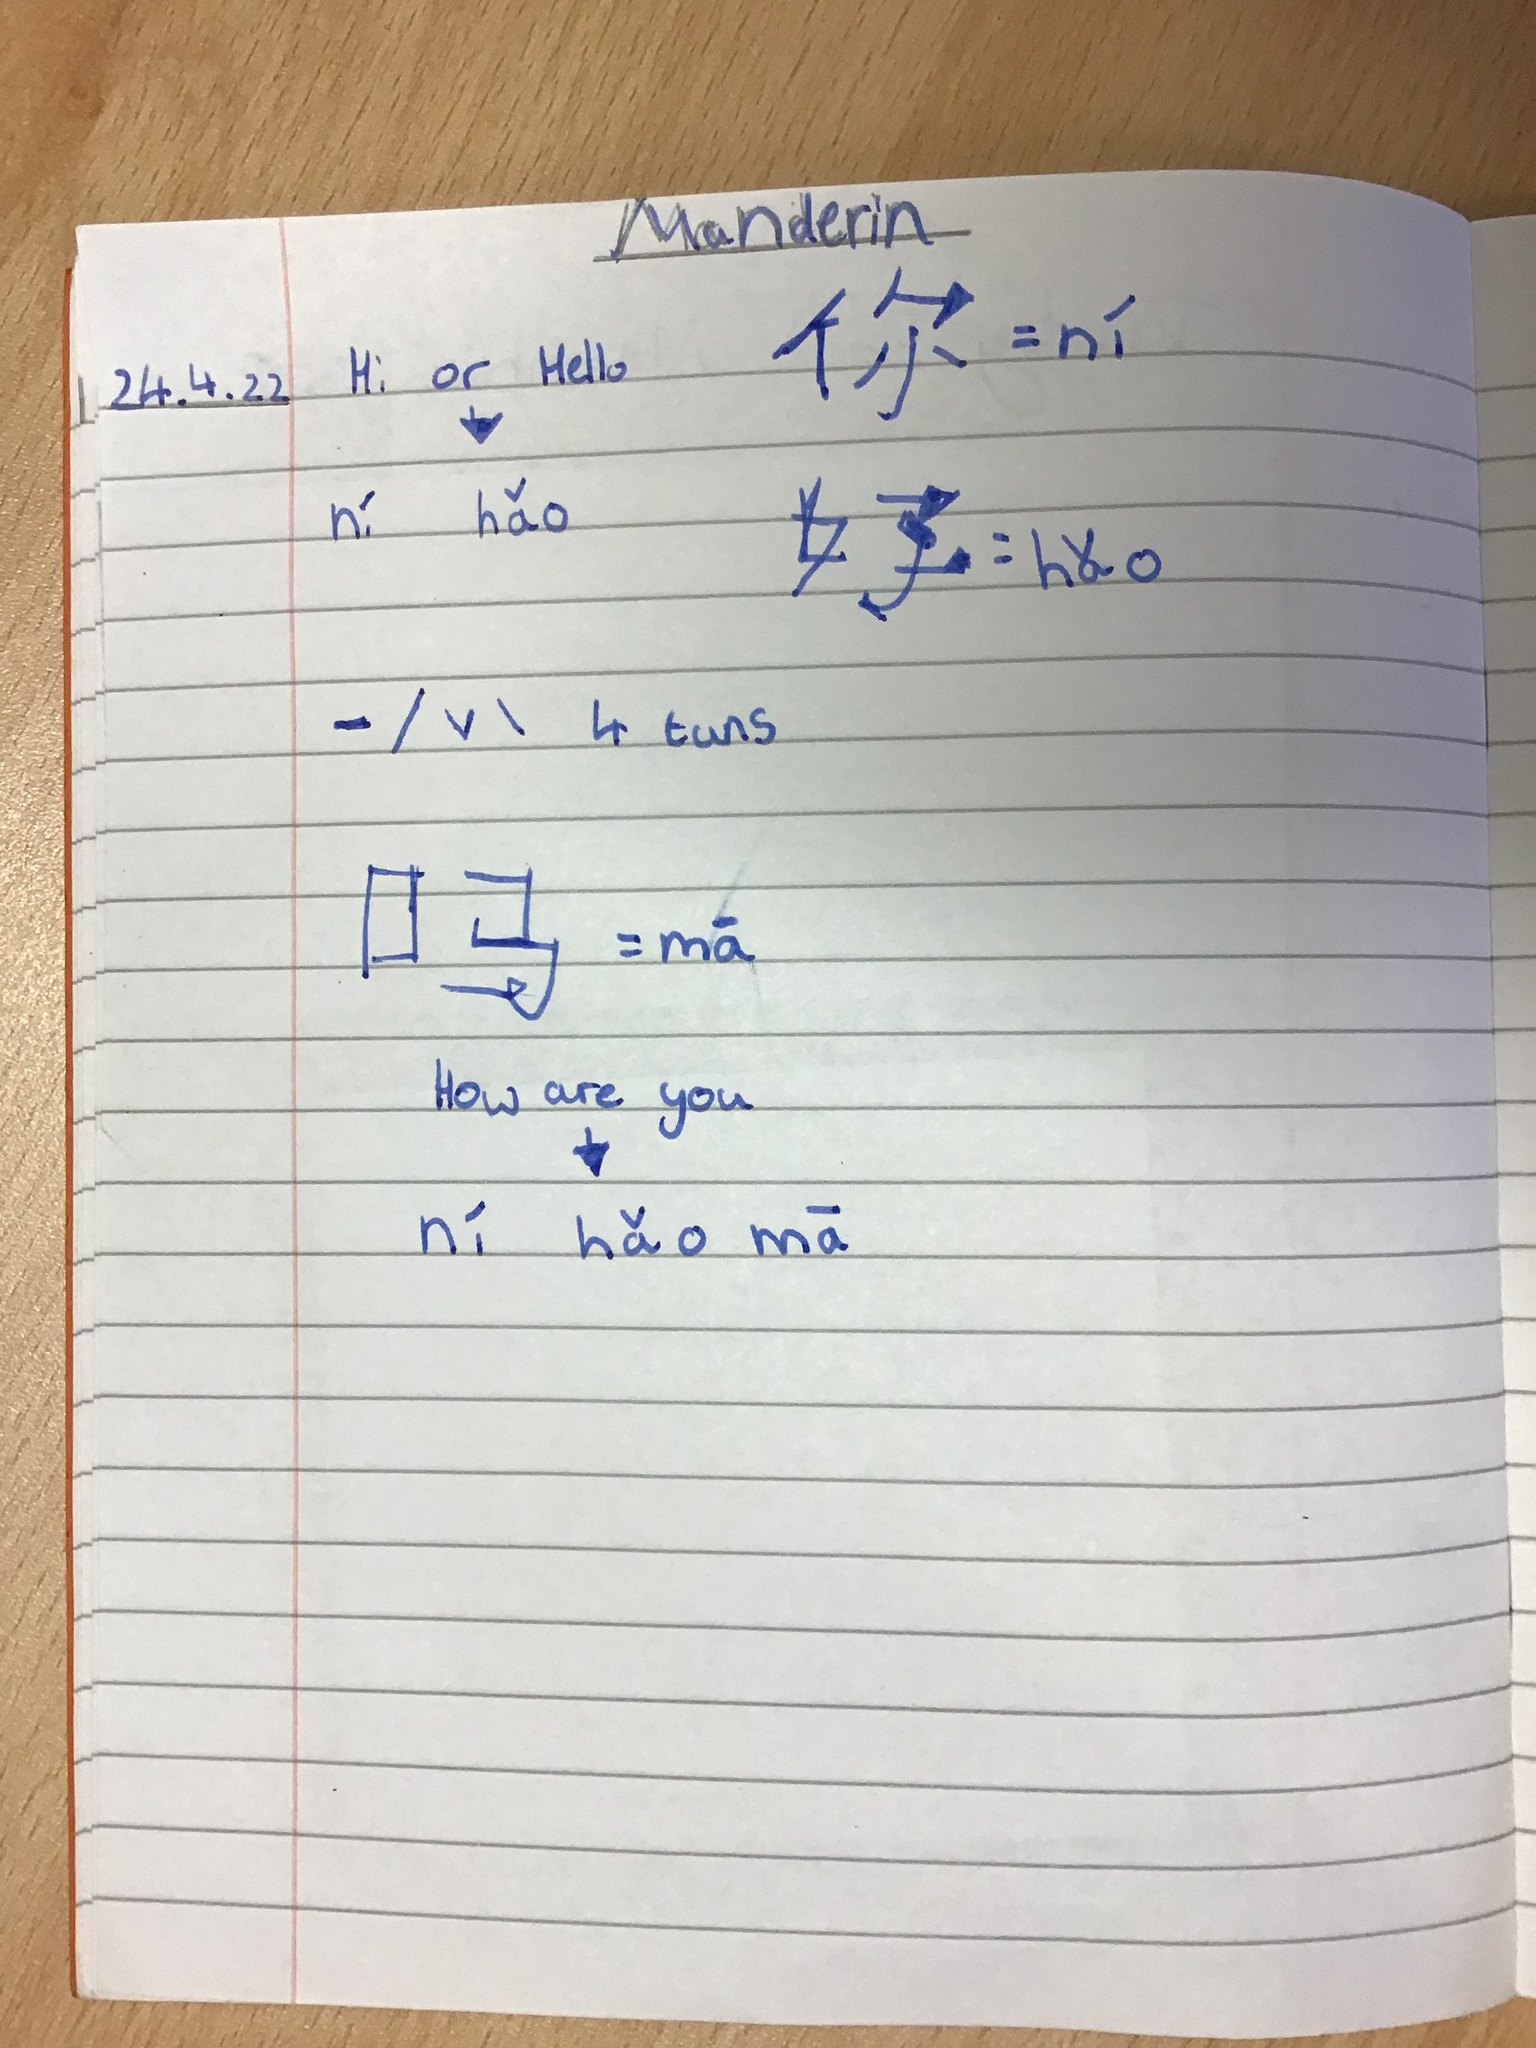 Manderin
24.4.22 Hi or Hello 你 = ní
ní hǎo 好 = hǎo
- / v \ 4 tuns
吗 = mā
How are you
ní hǎo mā